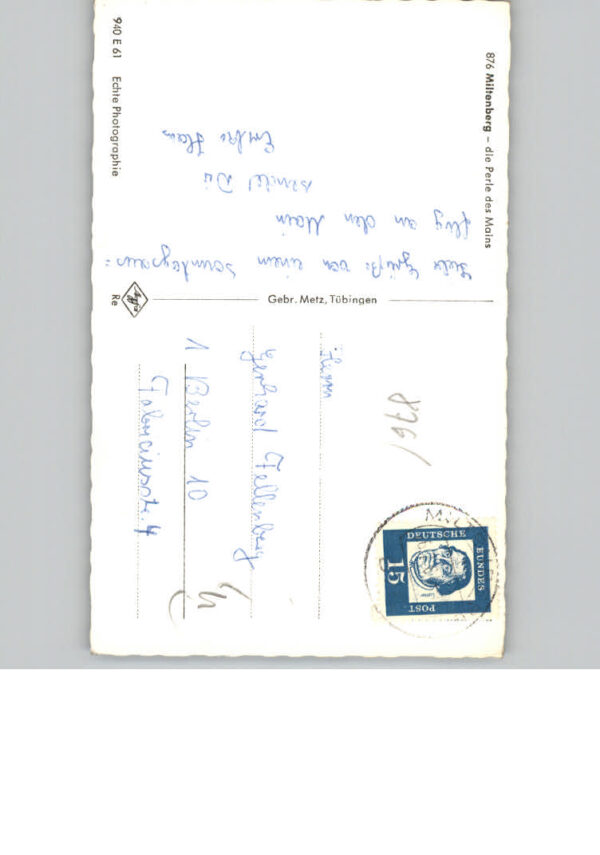 876 Miltenberg – die Perle des Mains
Liebe Grüße von einem Sonntagsaus=
flug an den Main
sendet Dir
Hans
940 E 61 Echte Photographie
Gebr. Metz, Tübingen
Agfa
Re
876/
Herrn
Gerhard Fellenberg
1 Berlin 10
4
DEUTSCHE
BUNDES
POST
15
Luther